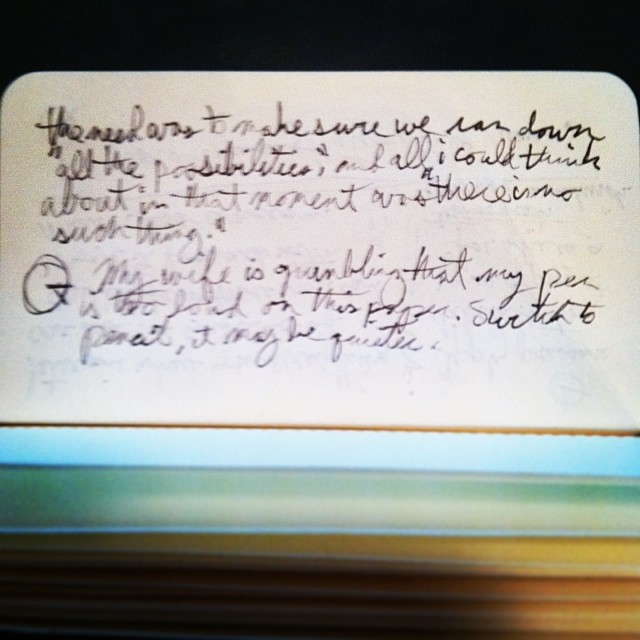 the need was to make sure we ran down
"all the possibilities", and all i could think
about in that moment was "there is no
such thing."
My wife is grumbling that my pen
is too loud on this paper. Switch to
pencil, it may be quieter.